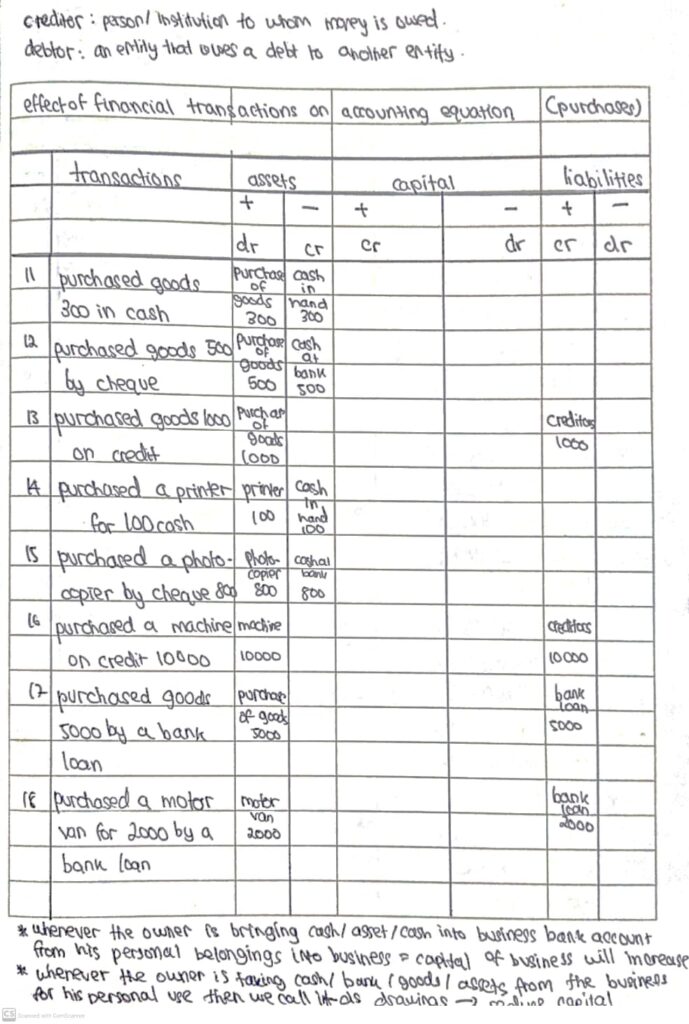 creditor : person/ institution to whom money is owed.
debtor : an entity that owes a debt to another entity.
effect of financial transactions on accounting equation (purchases)
transactions assets capital liabilities
+ - + - + -
dr cr cr dr cr dr
11 purchased goods 300 in cash
purchase of goods 300
cash in hand 300
12 purchased goods 500 by cheque
purchase of goods 500
cash at bank 500
13 purchased goods 1000 on credit
purchas of goods 1000
creditors 1000
14 purchased a printer for 100 cash
printer 100
cash in hand 100
15 purchased a photo-copier by cheque 800
photo-copier 800
cash at bank 800
16 purchased a machine on credit 10000
machine 10000
creditors 10000
17 purchased goods 5000 by a bank loan
purchase of goods 5000
bank loan 5000
18 purchased a motor van for 2000 by a bank loan
motor van 2000
bank loan 2000
* whenever the owner is bringing cash/ asset/cash into business bank account
from his personal belongings into business = capital of business will increase
* whenever the owner is taking cash/ bank / goods / assets from the business
for his personal use then we call it drawings → capital
CS Scanned with CamScanner